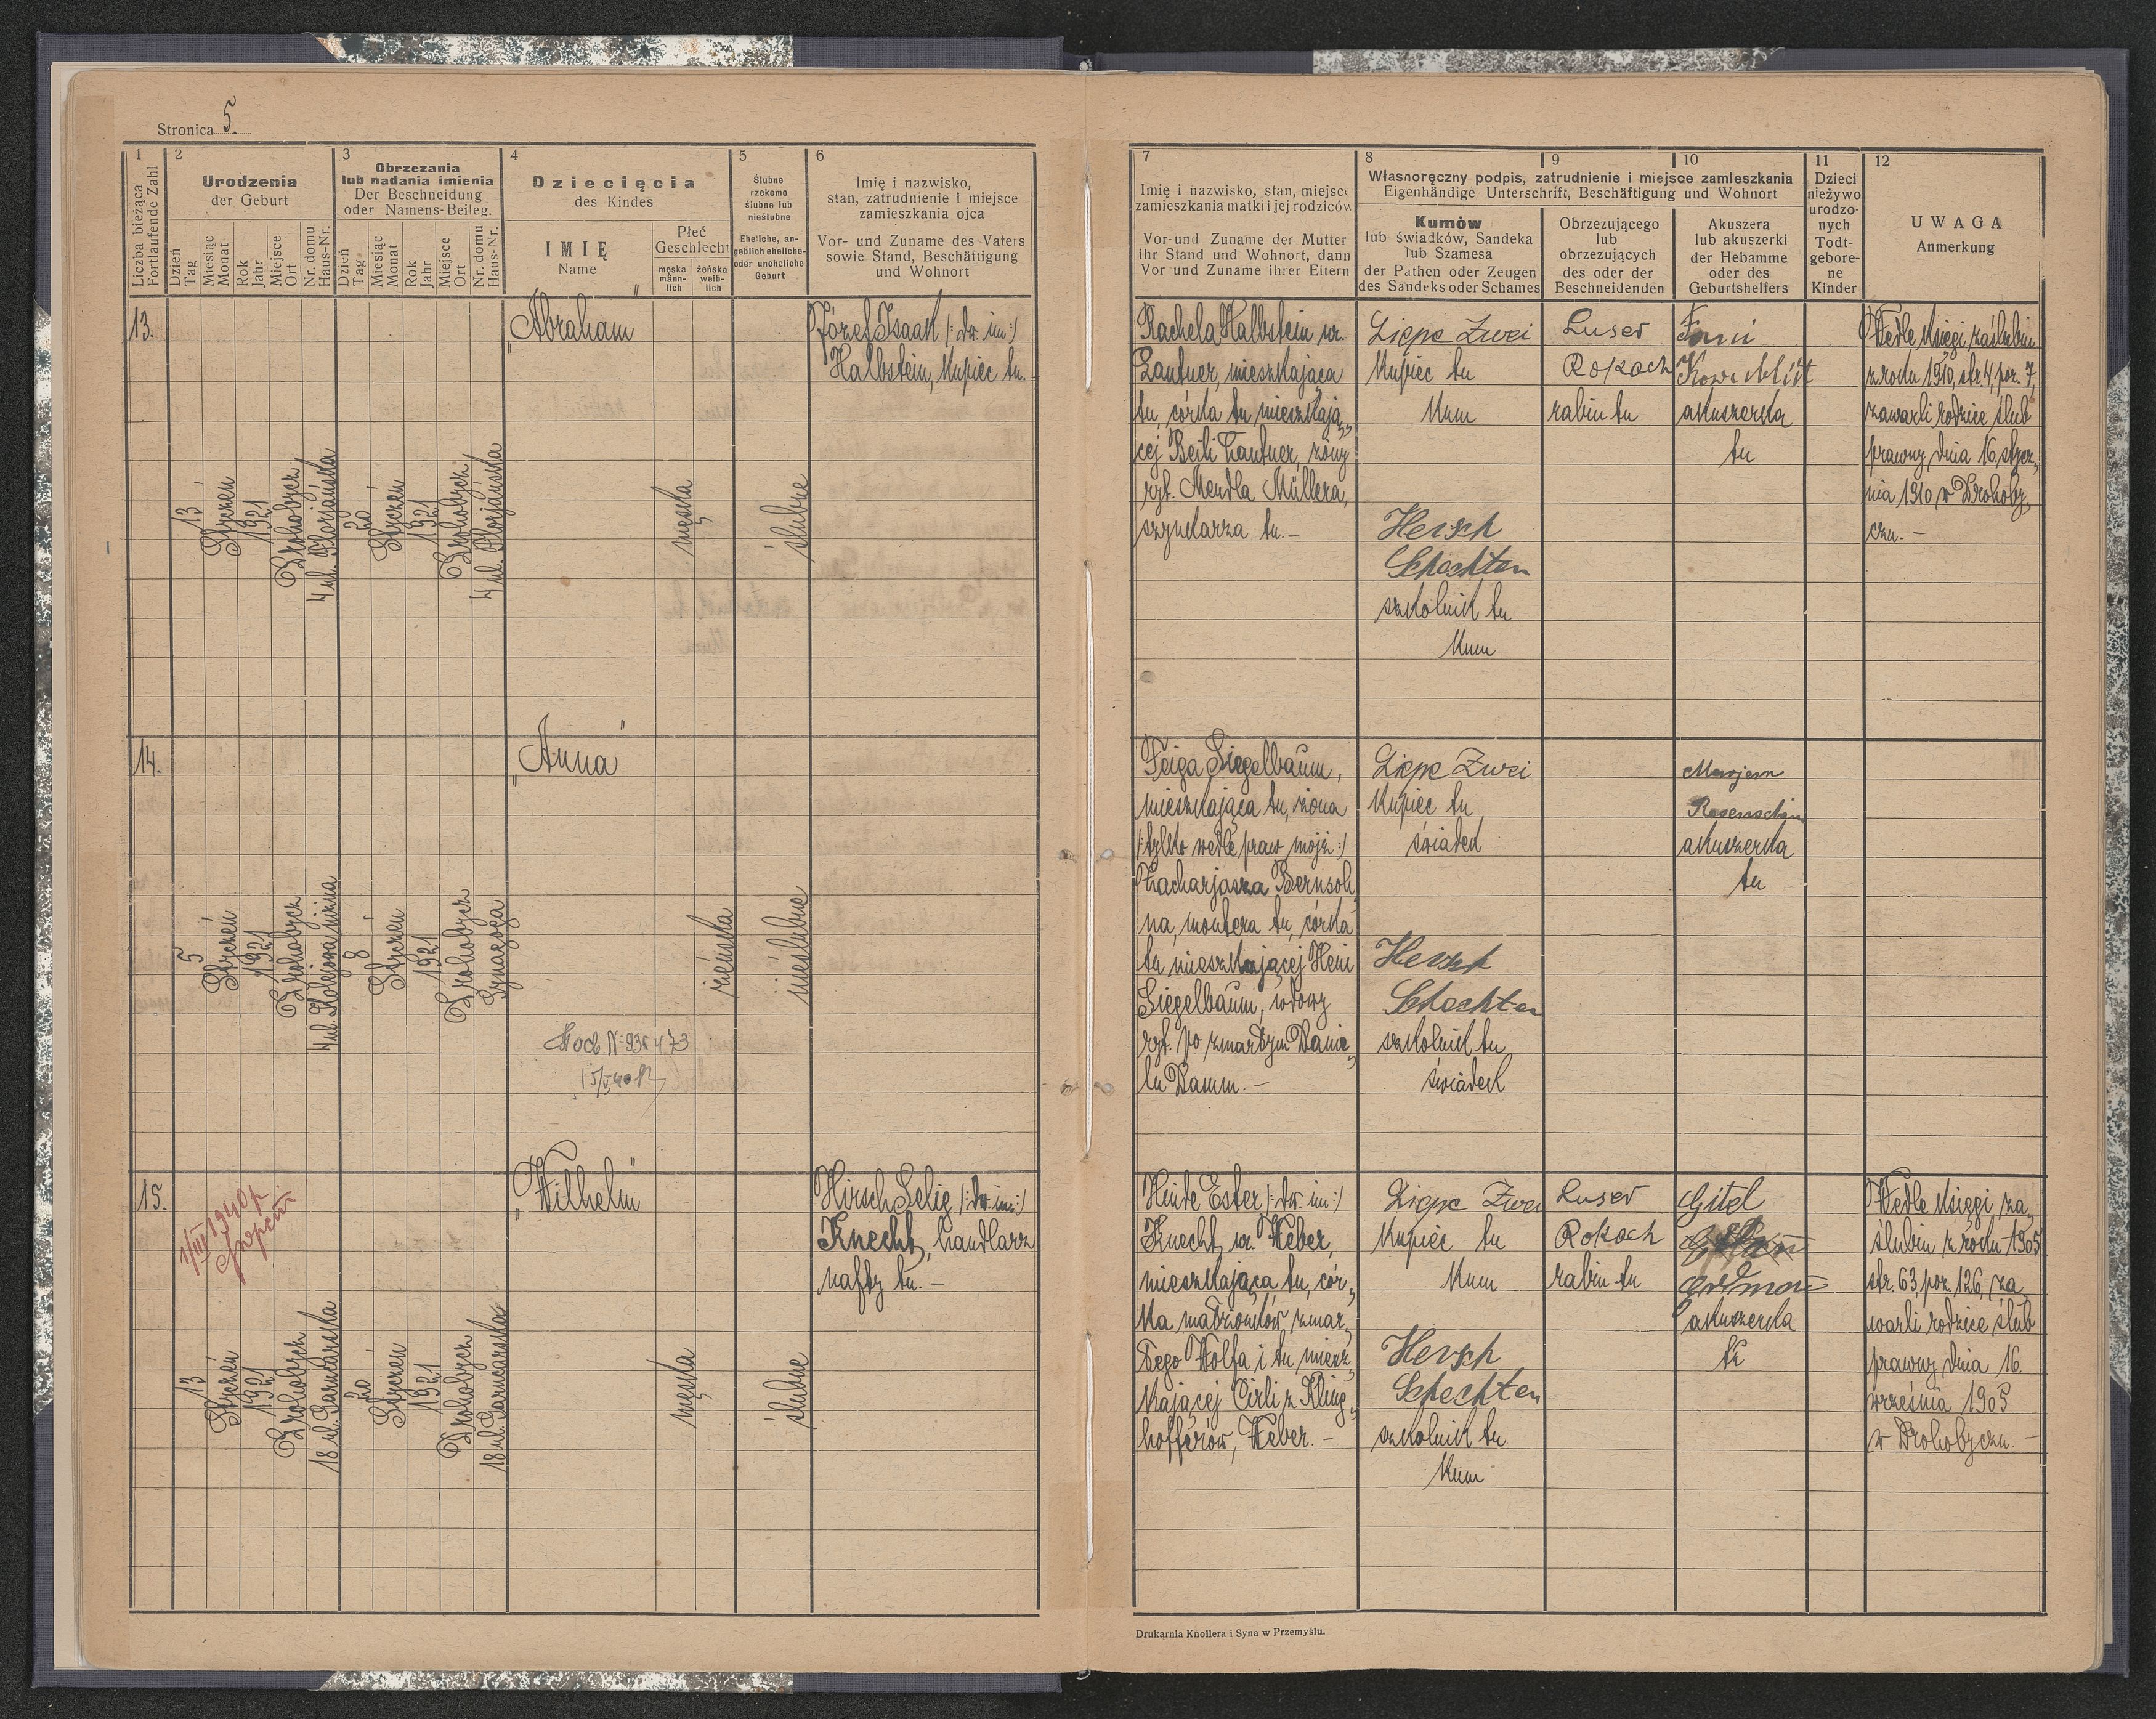 Stronica 5.
1
Liczba bieżąca
Fortlaufende Zahl
2
Urodzenia
der Geburt
Dzień
Tag
Miesiąc
Monat
Rok
Jahr
Miejsce
Ort
Nr. domu
Haus-Nr.
3
Obrzezania
lub nadania imienia
Der Beschneidung
oder Namens-Beileg.
Dzień
Tag
Miesiąc
Monat
Rok
Jahr
Miejsce
Ort
Nr. domu
Haus-Nr.
4
Dziecięcia
des Kindes
IMIĘ
Name
Płeć
Geschlecht
męska
männ-
lich
żeńska
weib-
lich
5
Ślubne
rzekomo
ślubne lub
nieślubne
Eheliche, an-
geblich eheliche
oder uneheliche
Geburt
6
Imię i nazwisko,
stan, zatrudnienie i miejsce
zamieszkania ojca
Vor- und Zuname des Vaters
sowie Stand, Beschäftigung
und Wohnort
7
Imię i nazwisko, stan, miejsce
zamieszkania matki i jej rodziców
Vor-und Zuname der Mutter
ihr Stand und Wohnort, dann
Vor und Zuname ihrer Eltern
8
9
10
Własnoręczny podpis, zatrudnienie i miejsce zamieszkania
Eigenhändige Unterschrift, Beschäftigung und Wohnort
Kumòw
lub świadków, Sandeka
lub Szamesa
der Pathen oder Zeugen
des Sandeks oder Schames
Obrzezującego
lub
obrzezujących
des oder der
Beschneidenden
Akuszera
lub akuszerki
der Hebamme
oder des
Geburtshelfers
11
Dzieci
nieżywo
urodzo-
nych
Todt-
gebore-
ne
Kinder
12
UWAGA
Anmerkung
13.
13
Styczeń
1921
Drohobycz
4 ul. Florjańska
20
Styczeń
1921
Drohobycz
4 ul. Florjańska
"Abraham"
męska
ślubne
Józef Isaak /: dw. im:/
Halbstein, kupiec tu. -
Rachela Halbstein ur.
Lautner, mieszkająca
tu, córka tu mieszkają„
cej Beili Lautner, żony
ryt. Mendla Müllera,
szynkarza tu. -
Lippe Zwei
kupiec tu
kum
Hersch
Schechter
szkolnik tu
kum
Luser
Rokach
rabin tu
akuszerka
tu
Wedle księgi zaślubin
z roku 1910, str. 4, poz. 7,
zawarli rodzice ślub
prawny dnia 16 stycz„
nia 1910 w Drohoby„
czu. -
14.
5
Styczeń
1921
Drohobycz
8
Styczeń
1921
Drohobycz
Synagoga
"Anna"
żeńska
nieślubne
Feiga Siegelbaum,
mieszkająca tu, żona
/:tylko wedle praw mojż:/
Zacharjasza Bernsoh„
na, montera tu, córka
tu mieszkającej Heni
Siegelbaum, wdowy
ryt. po zmarłym Danie„
lu Damm. -
Lippe Zwei
kupiec tu
świadek
Hersch
Schechter
szkolnik tu
świadek
Marjem
akuszerka
tu
15.
1/III 1940 r
13
Styczeń
1921
Drohobycz
18 ul. Garncarska
20
Styczeń
1921
Drohobycz
18 ul. Garncarska
"Wilhelm"
męska
ślubne
Hirsch Selig /: dw. im:/
Knecht, handlarz
nafty tu. -
Hinde Ester /: dw. im:/
Knecht ur. Weber,
mieszkająca tu, cór„
ka małżonków zmar„
łego Wolfa i tu miesz„
kającej Cirli z Kling„
hofferów, Weber. -
Lippe Zwei
kupiec tu
kum
Hersch
Schechter
szkolnik tu
kum
Luser
Rokach
rabin tu
Gitel
akuszerka
tu
Wedle księgi za„
ślubin z roku 1905
str. 63, poz. 126, za„
warli rodzice ślub
prawny dnia 16
września 1905
w Drohobyczu. -
Drukarnia Knollera i Syna w Przemyślu.